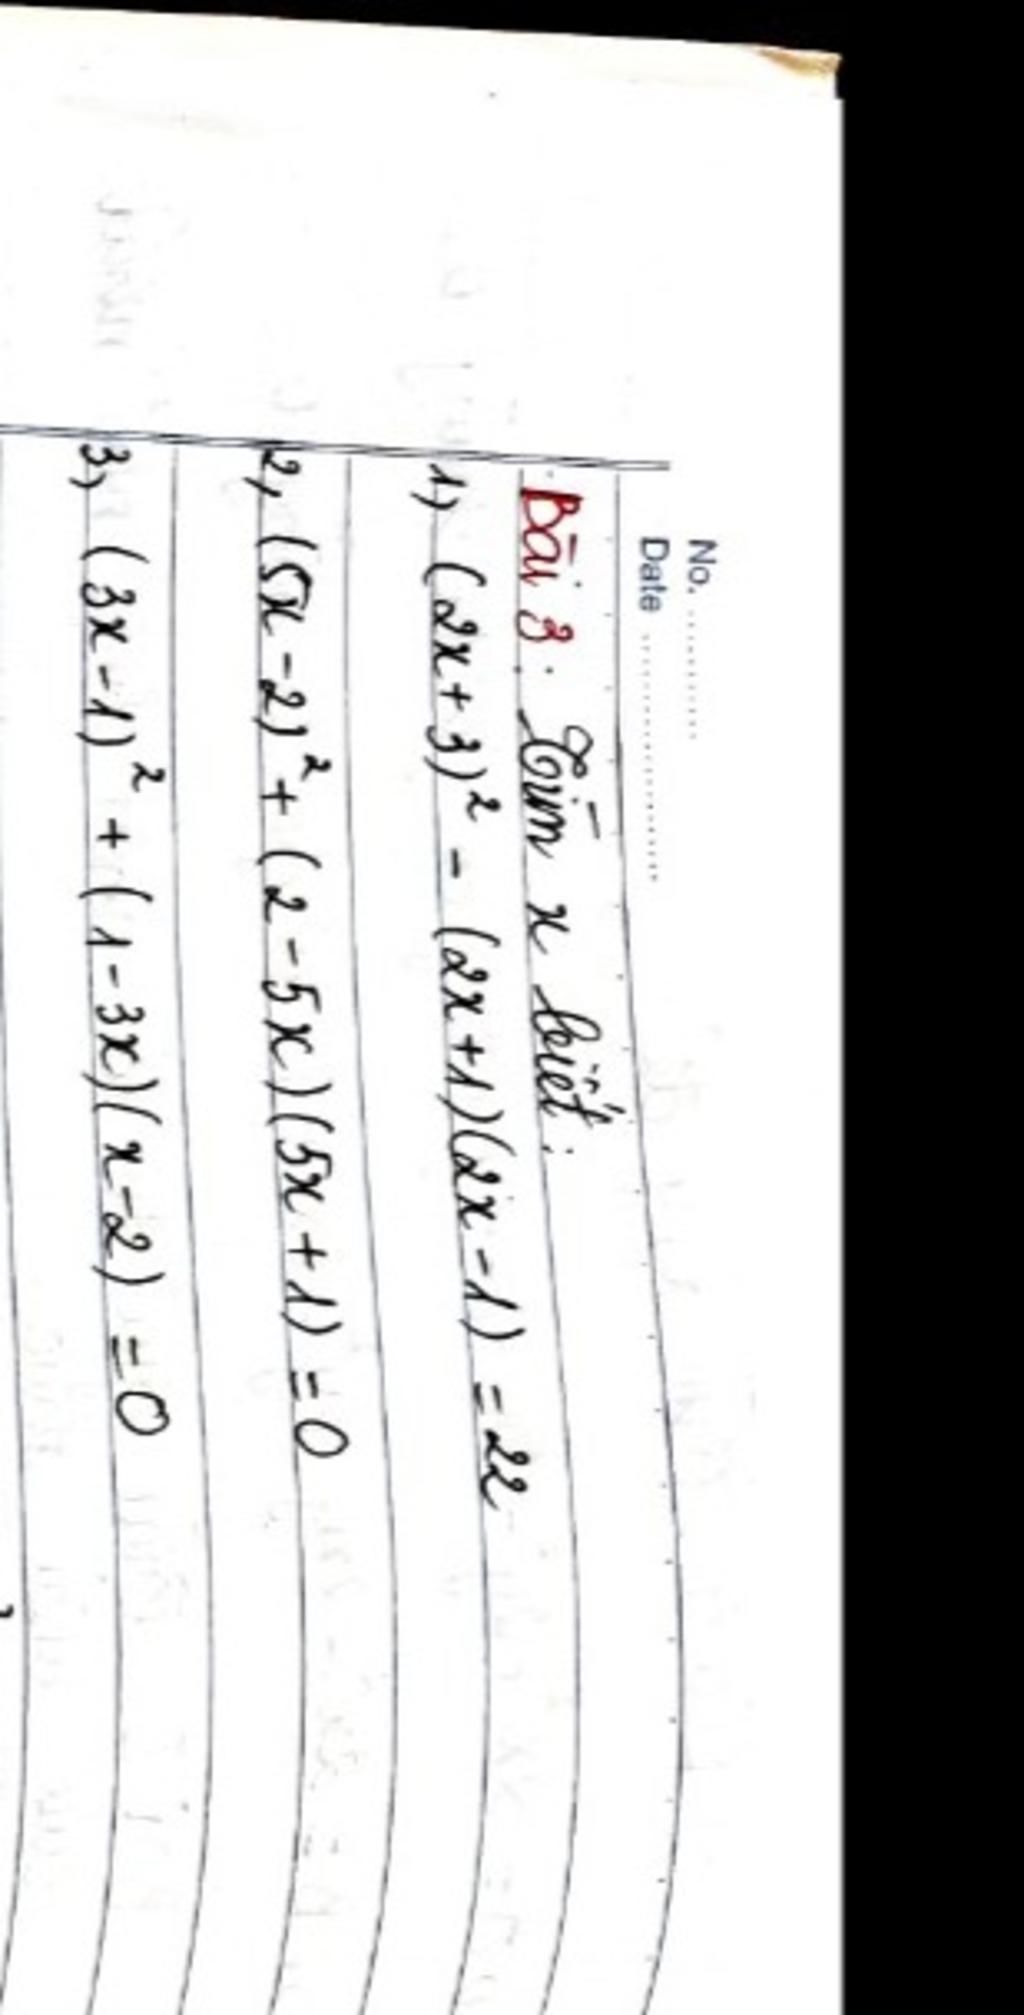 No. ............
Date ......................
Bài 3: Tìm x biết:
1, (2x+3)² - (2x+1)(2x-1) = 22
2, (5x-2)² + (2-5x)(5x+1) = 0
3, (3x-1)² + (1-3x)(x-2) = 0